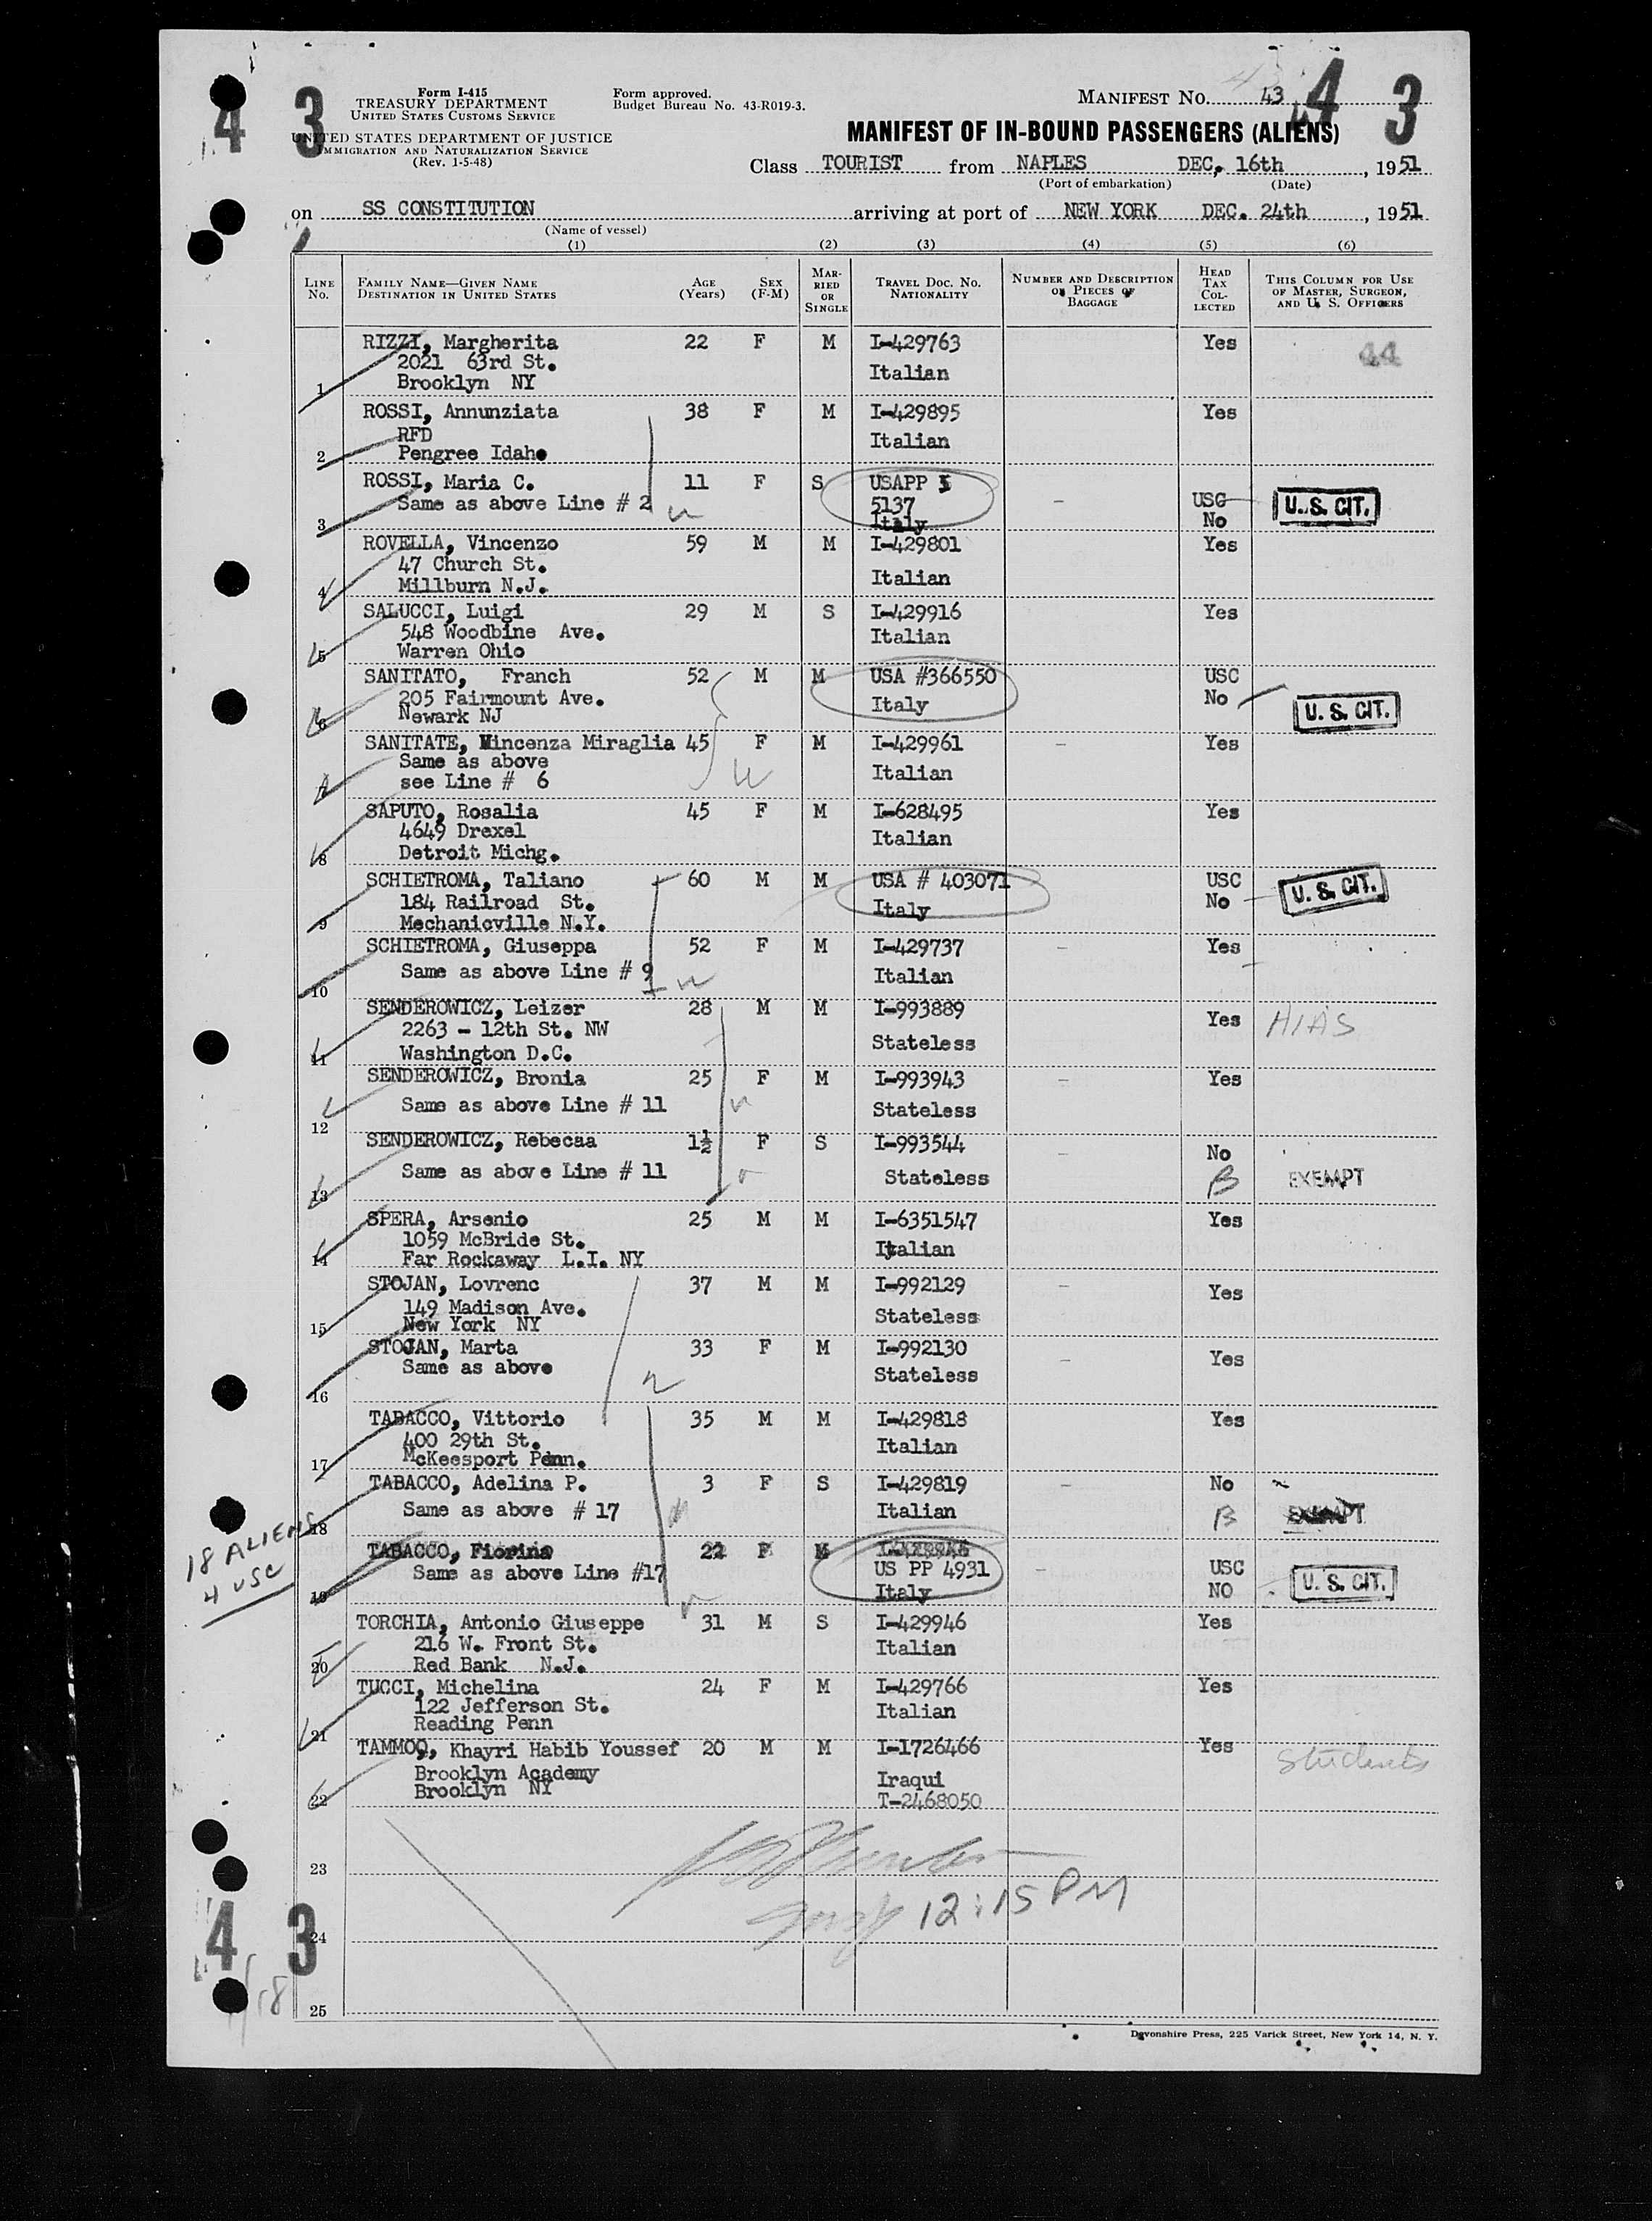 4 3
Form I-415
TREASURY DEPARTMENT
UNITED STATES CUSTOMS SERVICE
UNITED STATES DEPARTMENT OF JUSTICE
IMMIGRATION AND NATURALIZATION SERVICE
(Rev. 1-5-48)
Form approved.
Budget Bureau No. 43-R019-3.
MANIFEST NO. 43
4 3
MANIFEST OF IN-BOUND PASSENGERS (ALIENS)
Class TOURIST from NAPLES DEC. 16th, 1951
(Port of embarkation) (Date)
on SS CONSTITUTION arriving at port of NEW YORK DEC. 24th, 1951
(Name of vessel)
(1) (2) (3) (4) (5) (6)
LINE No.
FAMILY NAME—GIVEN NAME
DESTINATION IN UNITED STATES
AGE (Years)
SEX (F-M)
MAR-RIED OR SINGLE
TRAVEL DOC. NO. NATIONALITY
NUMBER AND DESCRIPTION OF PIECES OF BAGGAGE
HEAD TAX COL-LECTED
THIS COLUMN FOR USE OF MASTER, SURGEON, AND U. S. OFFICERS
RIZZI, Margherita 22 F M I-429763 Yes 44
2021 63rd St. Italian
1 Brooklyn NY
ROSSI, Annunziata 38 F M I-429895 Yes
RFD Italian
2 Pengree Idaho
ROSSI, Maria C. 11 F S USAPP
Same as above Line # 2 5137 USC U. S. CIT.
3 Italy No
ROVELLA, Vincenzo 59 M M I-429801 Yes
47 Church St. Italian
4 Millburn N.J.
SALUCCI, Luigi 29 M S I-429916 Yes
548 Woodbine Ave. Italian
5 Warren Ohio
SANITATO, Franch 52 M M USA #366550 USC
205 Fairmount Ave. Italy No U. S. CIT.
6 Newark NJ
SANITATE, Vincenza Miraglia 45 F M I-429961 Yes
Same as above Italian
7 see Line # 6
SAPUTO, Rosalia 45 F M I-628495 Yes
4649 Drexel Italian
8 Detroit Michg.
SCHIETROMA, Taliano 60 M M USA # 403071 USC U. S. CIT.
184 Railroad St. Italy No
9 Mechanicville N.Y.
SCHIETROMA, Giuseppa 52 F M I-429737 Yes
Same as above Line # 9 Italian
10
SENDEROWICZ, Leizer 28 M M I-993889 Yes HIAS
2263 - 12th St. NW Stateless
11 Washington D.C.
SENDEROWICZ, Bronia 25 F M I-993943 Yes
Same as above Line # 11 Stateless
12
SENDEROWICZ, Rebecaa 1½ F S I-993544 No
Same as above Line # 11 Stateless B EXEMPT
13
SPERA, Arsenio 25 M M I-6351547 Yes
1059 McBride St. Italian
14 Far Rockaway L.I. NY
STOJAN, Lovrenc 37 M M I-992129 Yes
149 Madison Ave. Stateless
15 New York NY
STOJAN, Marta 33 F M I-992130 Yes
Same as above Stateless
16
TABACCO, Vittorio 35 M M I-429818 Yes
400 29th St. Italian
17 McKeesport Penn.
TABACCO, Adelina P. 3 F S I-429819 No
Same as above # 17 Italian B EXEMPT
18
18 ALIENS
4 USC
TABACCO, Fiorina 22 F M
Same as above Line #17 US PP 4931 USC U. S. CIT.
19 Italy NO
TORCHIA, Antonio Giuseppe 31 M S I-429946 Yes
216 W. Front St. Italian
20 Red Bank N.J.
TUCCI, Michelina 24 F M I-429766 Yes
122 Jefferson St. Italian
21 Reading Penn
TAMMOO, Khayri Habib Youssef 20 M M I-1726466 Yes Students
Brooklyn Academy Iraqui
22 Brooklyn NY T-2468050
23
12:15 PM
4 3
24
18
25
Devonshire Press, 225 Varick Street, New York 14, N. Y.